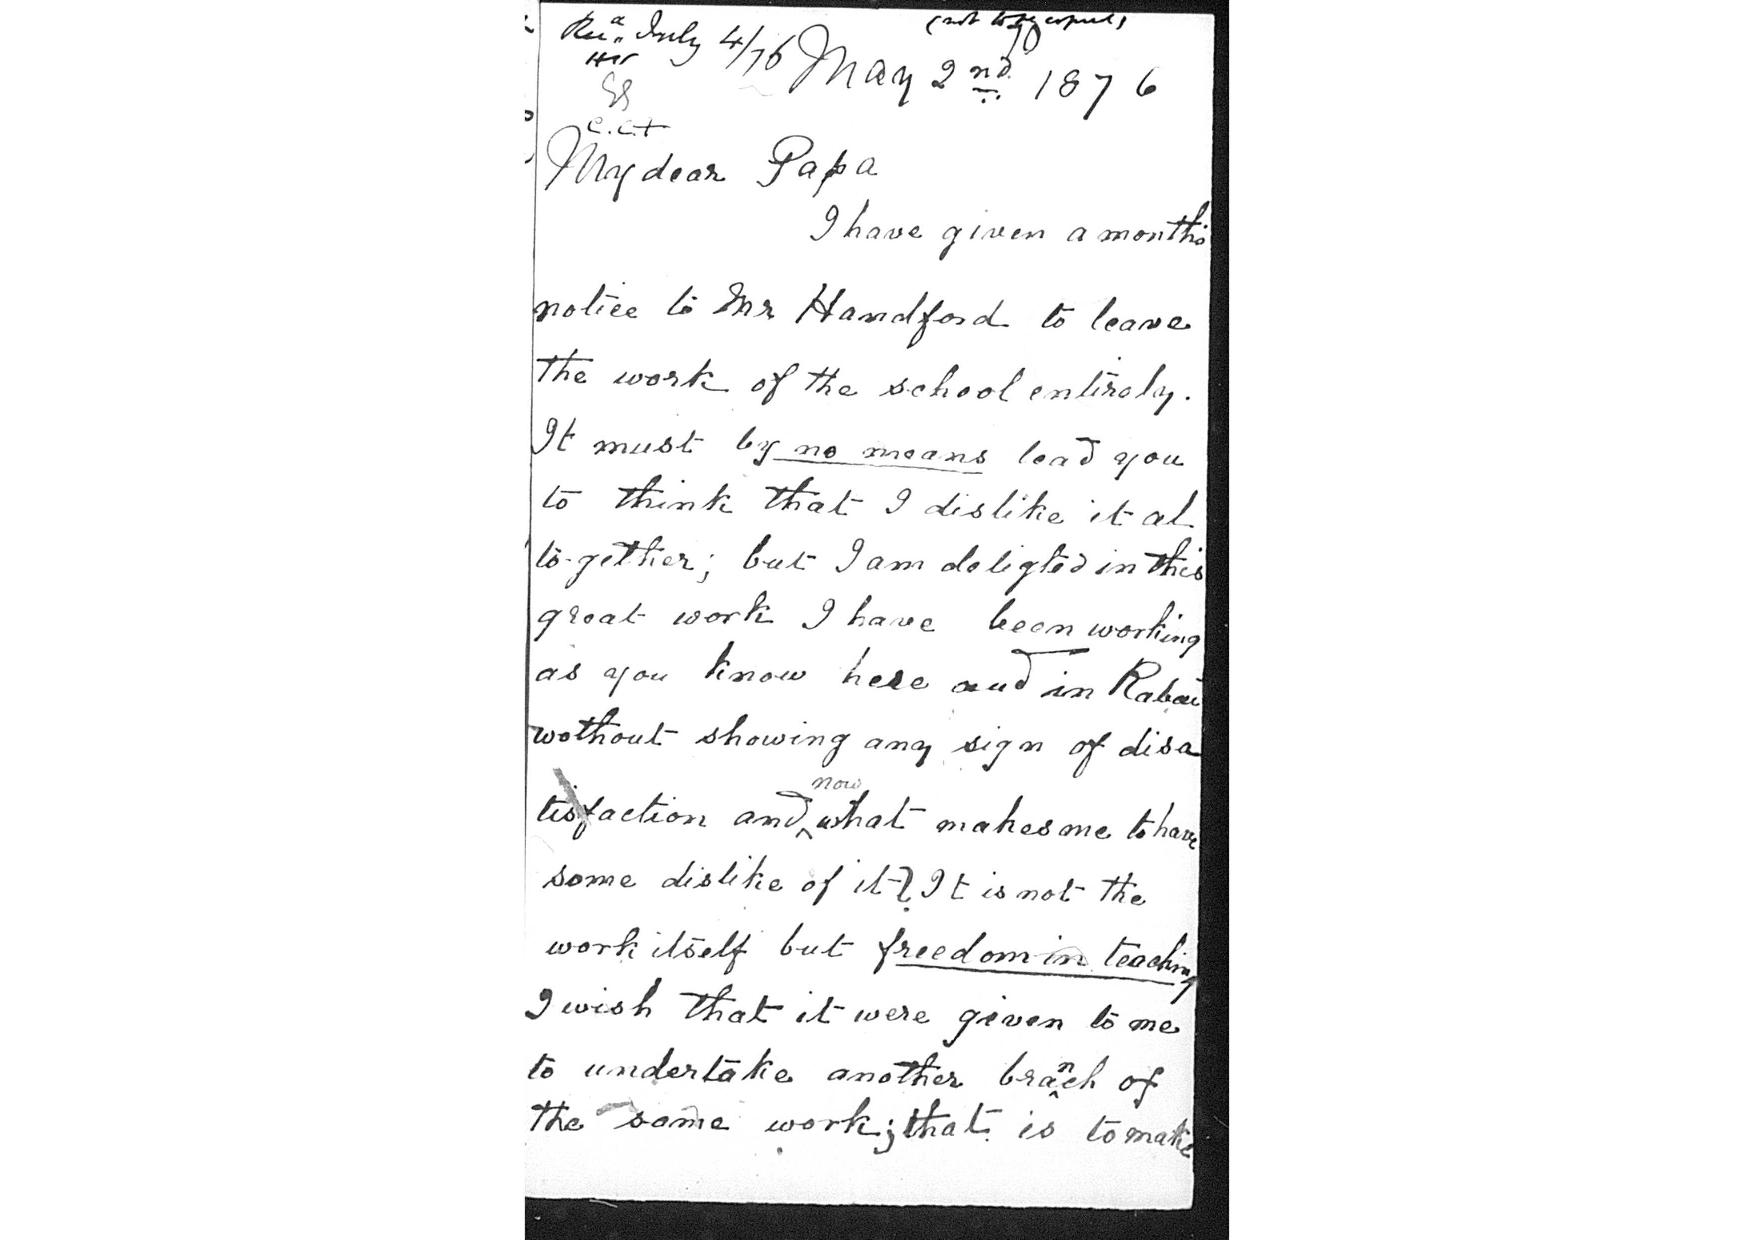 July 4/76
May 2nd. 1876
C.C.t
My dear Papa
I have given a months
notice to Mr Handford to leave
the work of the school entirely.
It must by no means lead you
to think that I dislike it al
to-gether; but I am deligted in this
great work I have been working
as you know here and in Rabai
wothout showing any sign of disa
tisfaction and now what makes me to have
some dislike of it? It is not the
work itself but freedom in teaching
I wish that it were given to me
to undertake another branch of
the same work; that is to make